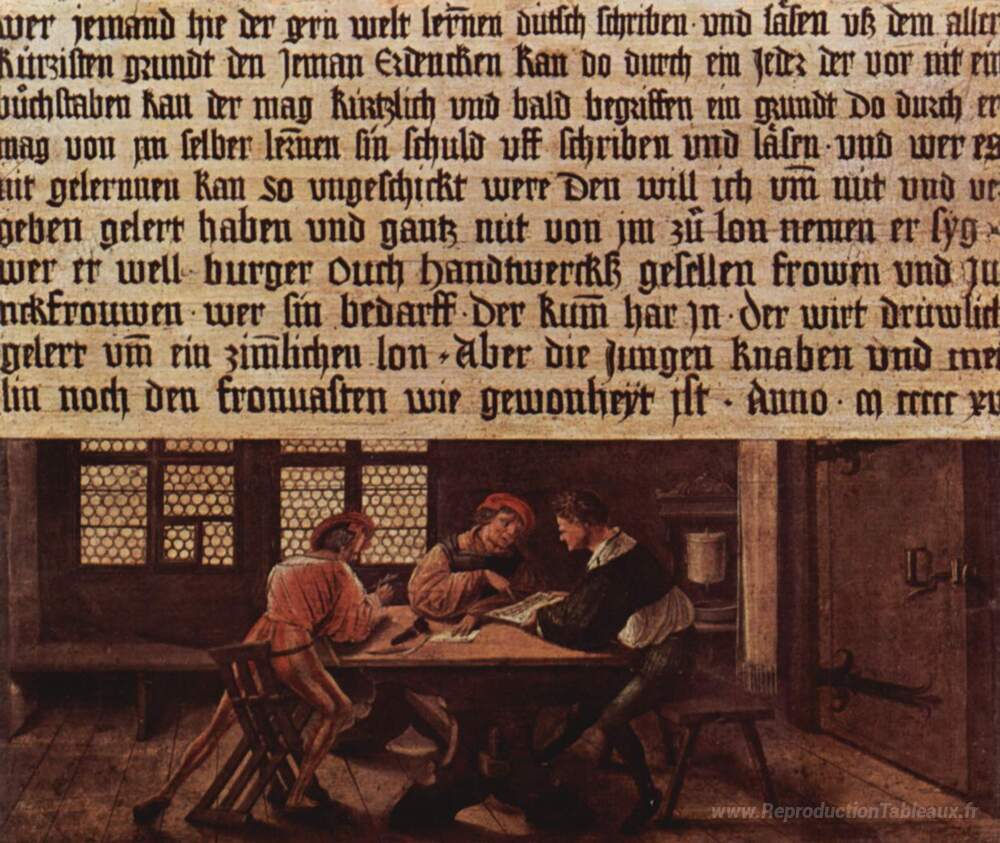 wer jemand hie der gern welt lern̄en dütsch schriben · vnd läsen vß dem aller
kürzisten grundt den Jeman Erdencken kan do durch ein Jeder der vor nit ein
bůchstaben kan der mag kürtzlich vnd bald begriffen ein grundt do durch er
mag von jm selber lernnen sin schuld vff schriben vnd läsen · vnd wer es
nit gelernnen kan so vngeschickt were Den will ich vm̄ nüt vnd ve
geben gelert haben vnd gantz nüt von jm zů lon nemen er syg ·
wer er well burger ouch handtwerckß gesellen frowen vnd Ju
nckfrouwen · wer sin bedarff · Der kum̄ har jn · der wirt drüwlich
gelert vm̄ ein zim̄lichen lon · Aber die Jungen knaben vnd mei
lin noch den fronuasten wie gewonheyt jst · Anno · m ccccc xv
www.ReproductionTableaux.fr